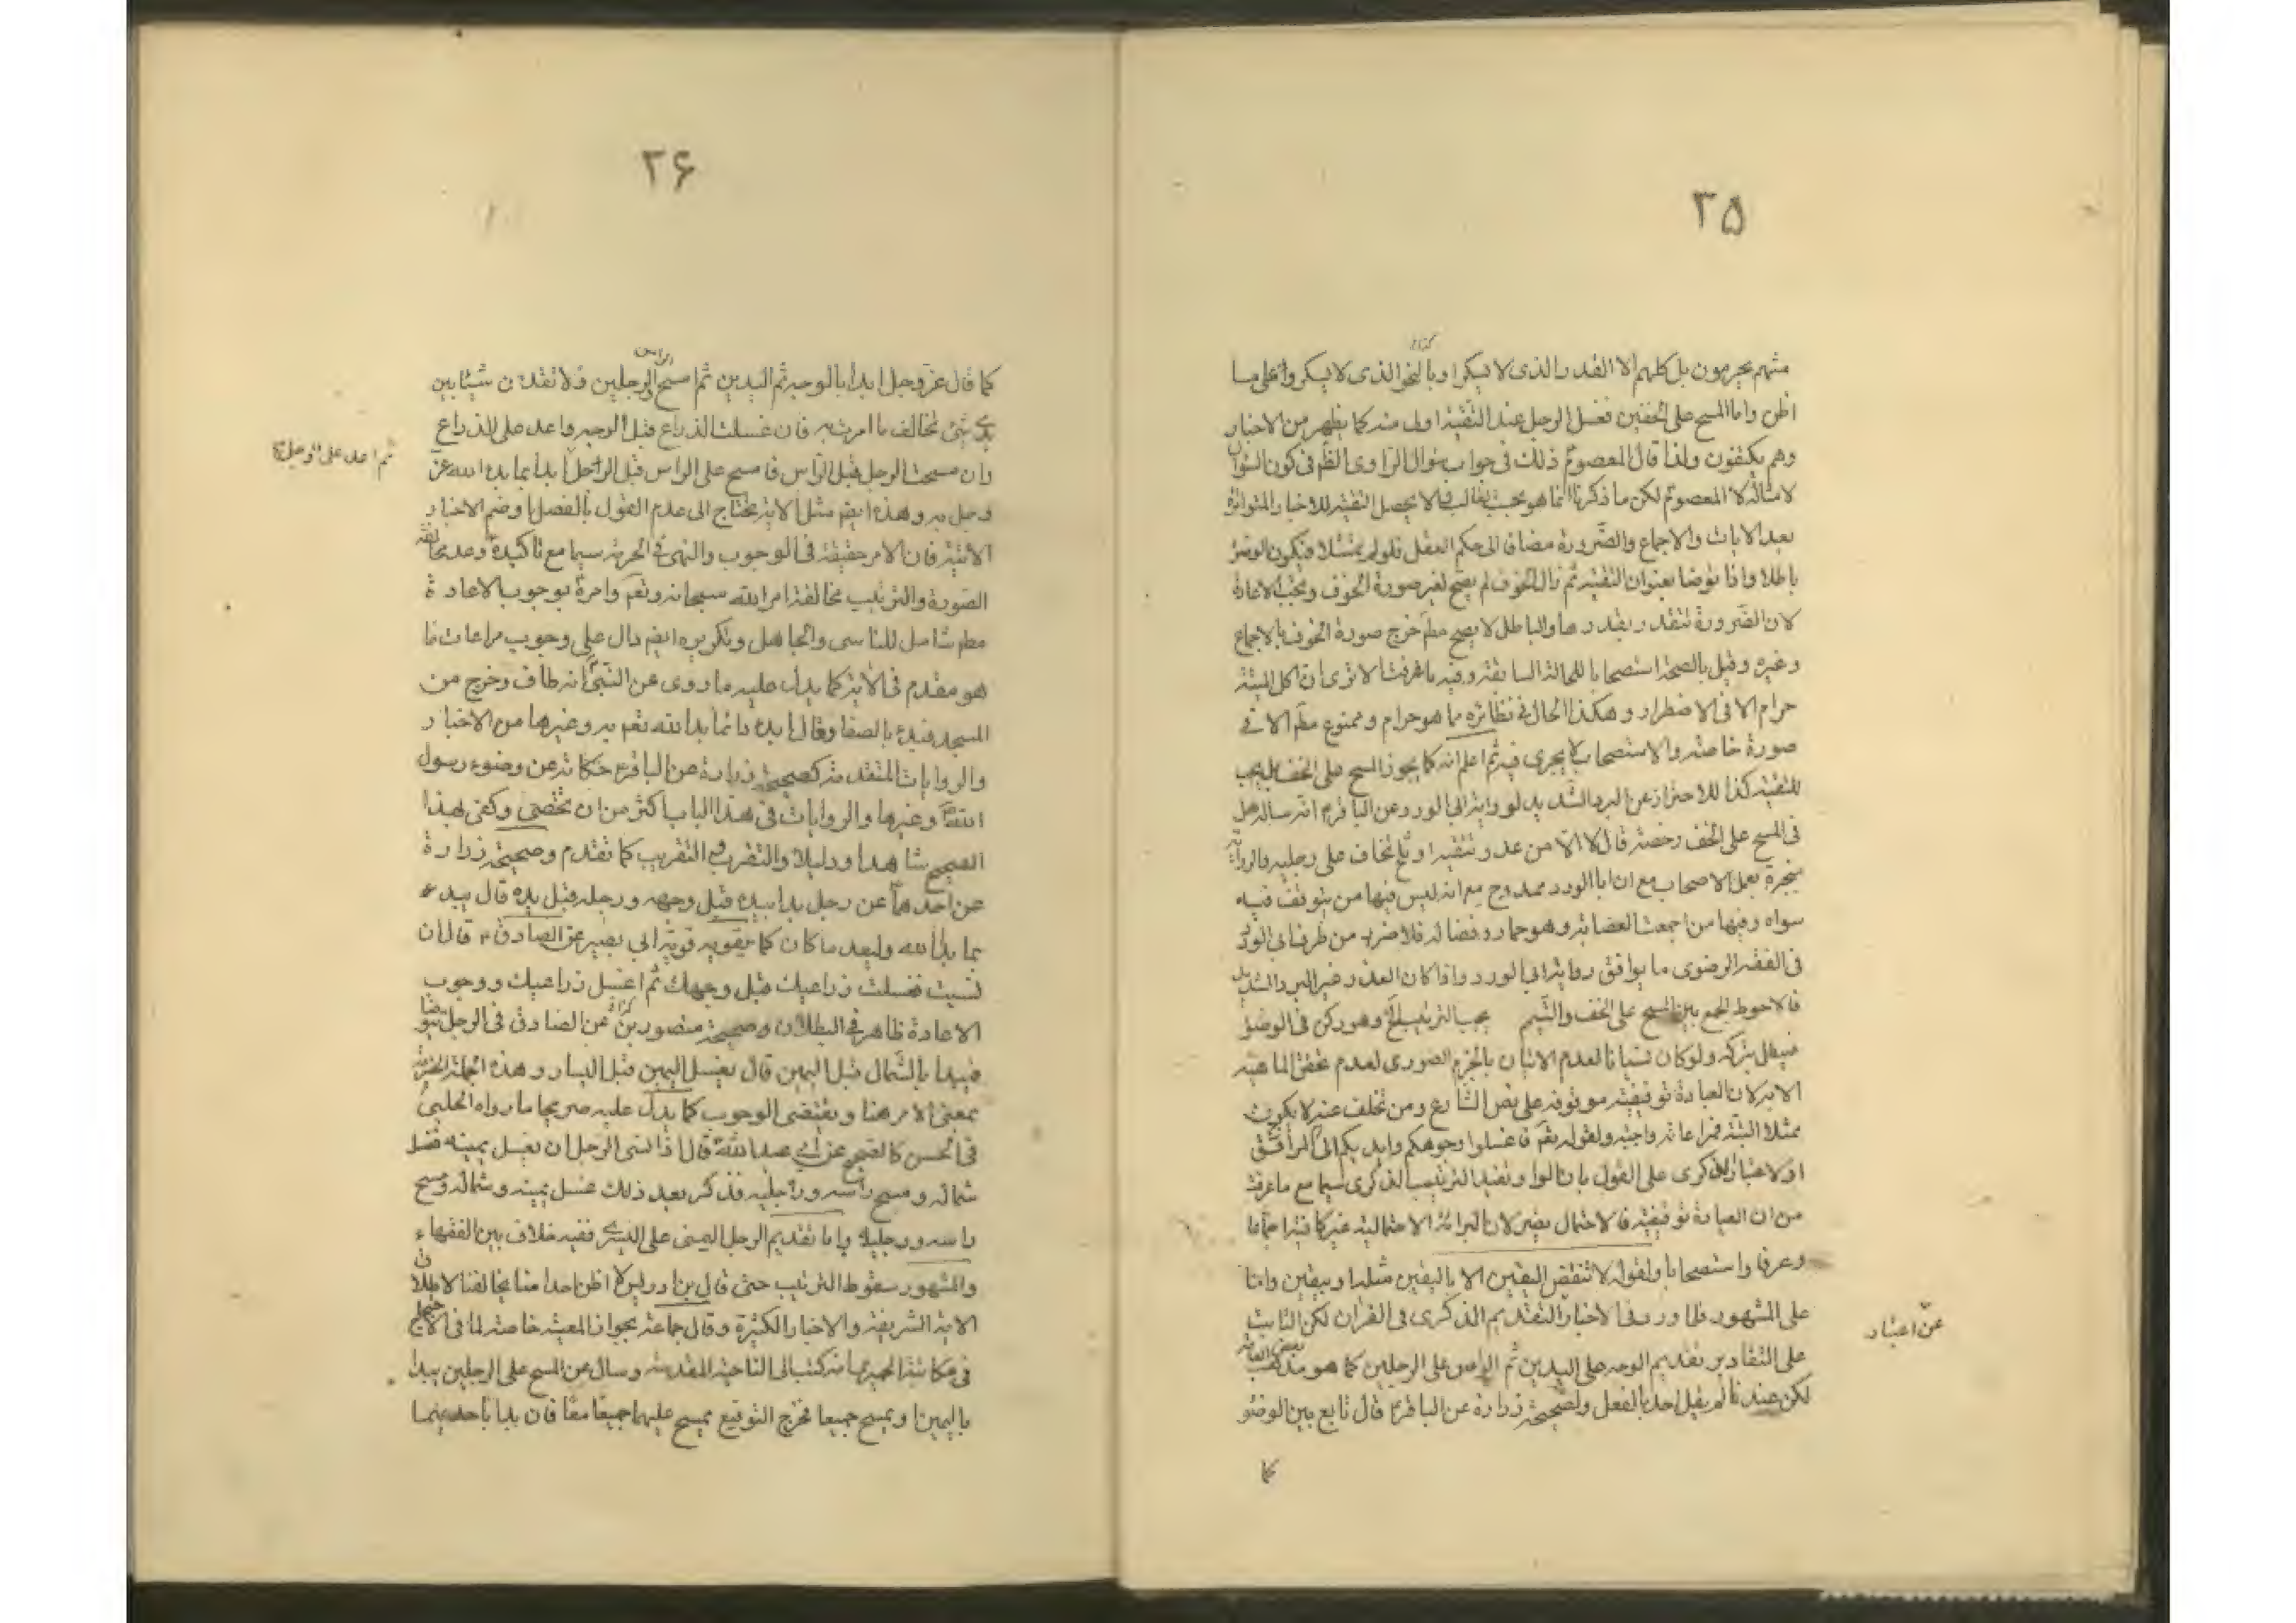 ۳۵
منهم يحرمون بل كلهم الا القدر الذى لا يسكر او بالنحو الذى لا يسكر واعلى ما
اظن واما المسح على الخفين فغسل الرجل عند التقية اولى منه كما يظهر من الاخبار
وهم يكتفون ولذا قال المعصوم ذلك فى جواب سؤال الراوى الظم فى كون السؤال
لامثاله لا المعصوم لكن ما ذكرنا انما هو بحسب الا يحصل التقية للاخبار المتواترة
بعد الايات والاجماع والضرورة مضاف الى حكم العقل فلو لم يمتثل فيكون الوضوء
باطلا واذا توضا بعنوان التقية ثم زال الخوف لم يصح لغير صورة الخوف ويجب الاعادة
لان الضرورة تتقدر بقدرها والباطل لا يصح مطم خرج صورة الخوف بالاجماع
وغيره وقيل بالصحة استصحابا للحالة السابقة وفيه ما عرفت الا ترى ان اكل الميتة
حرام الا فى الاضطرار وهكذا الحال فى نظائره مما هو حرام وممنوع مطم الا فى
صورة خاصة والاستصحاب لا يجرى فيه ثم اعلم انه كما يجوز المسح على الخف بل يجب
للتقية كذا للاحتراز عن البرد الشديد لرواية ابى الورد عن الباقر انه ساله هل
فى المسح على الخف رخصة قال لا الا من عدو تتقيه او ثلج تخاف على رجليه والرواية
منجبرة بعمل الاصحاب مع ان ابا الورد ممدوح مع انه ليس فيها من يتوقف فيه
سواه وفيها من اجمعت العصابة وهو حماد وفضالة فلا ضرر من طرف ابى الورد
فى الفقه الرضوى ما يوافق رواية ابى الورد واذا كان العذر غير البرد الشديد
فالاحوط الجمع بين المسح على الخف والتيمم يجب الترتيب وهو ركن فى الوضوء
فيبطل بتركه ولو كان نسيانا لعدم الاتيان بالجزء الصورى لعدم تحقق الماهية
الا به لان العبادة توقيفية موقوفة على نص الشارع ومن تخلف عنه لا يكون
ممتثلا البتة فمراعاته واجبة ولقوله تعم فاغسلوا وجوهكم وايديكم الى المرافق
او لاعتبار الذكرى على القول بان الواو تفيد الترتيب الذكرى سيما مع ما عرفت
من ان العبادة توقيفية فالاحتمال يضر لان البرائة الاحتمالية غير كافية اجماعا
وعرفا واستصحابا ولقوله لا تنقض اليقين الا باليقين مثله او بيقين واما
على المشهور فلما ورد فى الاخبار التقديم الذكرى فى القران لكن الثابت
عن اعتبار
على التقادير تقديم الوجه على اليدين ثم الراس على الرجلين كما هو مذهب بعض العامة
لكن عندنا لم يقل احد بالفعل ولصحيحة زرارة عن الباقر قال تابع بين الوضوء
كما
۳۶
كما قال عز وجل ابدا بالوجه ثم اليدين ثم امسح الراس والرجلين ولا تقدمن شيئا بين
يدى شئ تخالف ما امرت به فان غسلت الذراع قبل الوجه واعد على الذراع
وان مسحت الرجل قبل الراس فامسح على الراس قبل الرجل ابدا بما بدا الله عز
ثم اعد على الرجل
وجل به وهذه ايضم مثل الاية يحتاج الى عدم القول بالفصل او ضم الاخبار
الاتية فان الامر حقيقة فى الوجوب والنهى فى الحرمة سيما مع تاكيده وعد مخالفة
الصورة والترتيب مخالفة امر الله سبحانه وتعم وامره بوجوب الاعادة
مطم شامل للناسى والجاهل وتكريره ايضم دال على وجوب مراعات ما
هو مقدم فى الاية كما يدل عليه ما روى عن النبى انه طاف وخرج من
المسجد فبدء بالصفا وقال ابدء بما بدا الله تعم به وغيرها من الاخبار
والروايات المتقدمة كصحيحة زرارة عن الباقر حكاية عن وضوء رسول
الله وغيرها والروايات فى هذا الباب اكثر من ان تحصى وكفى لهذا
الصحيح شاهدا ودليلا والتقريب فى التقريب كما تقدم وصحيحة زرارة
عن احدهما عن رجل بدا بيده قبل وجهه ورجله قبل يده قال يبدء
بما بدا الله وليعد ما كان كما يقويه قوية ابى بصير عن الصادق قال ان
نسيت فغسلت ذراعيك قبل وجهك ثم اغسل ذراعيك ووجوب
الاعادة ظاهر فى البطلان وصحيحة منصور بن عن الصادق فى الرجل يتوضا
فيبدا بالشمال قبل اليمين قال يغسل اليمين قبل اليسار وهذه الجملة الخبرية
بمعنى الامر هنا ويقتضى الوجوب كما يدل عليه صريحا ما رواه الحلبى
فى الحسن كالصحيح عن ابى عبد الله قال اذا نسى الرجل ان يغسل يمينه فغسل
شماله ومسح راسه ورجليه فذكر بعد ذلك غسل يمينه وشماله ومسح
راسه ورجليه واما تقديم الرجل اليمنى على اليسرى ففيه خلاف بين الفقهاء
والمشهور سقوط الترتيب حتى قال بن ادريس لا اظن احدا منا يخالفنا لاطلاق
الاية الشريفة والاخبار الكثيرة وقال جماعة بجواز المعية خاصة لما فى الاحتجاج
فى مكاتبة الحميرى انه كتب الى الناحية المقدسة وسال عن المسح على الرجلين يبدا
باليمين او يمسح جميعا فخرج التوقيع يمسح عليهما جميعا معا فان بدا باحدهما